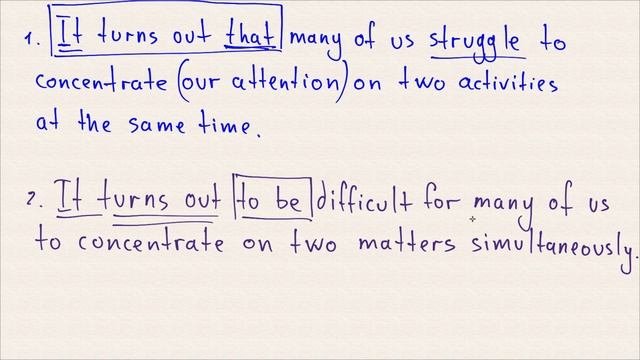 1. It turns out that many of us struggle to
concentrate (our attention) on two activities
at the same time.
2. It turns out to be difficult for many of us
to concentrate on two matters simultaneously.